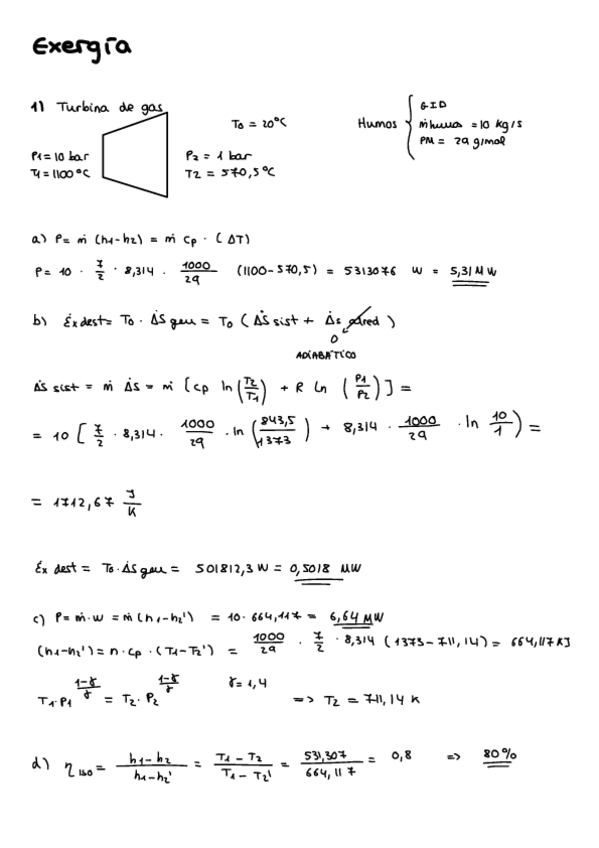 Exergía
1) Turbina de gas
T0 = 20°C
Humos { GID
ṁhumos = 10 kg/s
PM = 29 g/mol
P1 = 10 bar
T1 = 1100 °C
P2 = 1 bar
T2 = 570,5°C
a) P = ṁ (h1-h2) = ṁ cp · (ΔT)
P = 10 · 7/2 · 8,314 · 1000/29 (1100-570,5) = 5313076 W = 5,31 MW
b) Ėx dest = T0 · ΔṠ gen = T0 (ΔṠ sist + Δṡ alred)
0
ADIABÁTICO
ΔṠ sist = ṁ Δṡ = ṁ [cp ln (T2/T1) + R ln (P1/P2)] =
= 10 [7/2 · 8,314 · 1000/29 · ln (843,5/1373) + 8,314 · 1000/29 · ln 10/1) =
= 1712,67 J/K
Ėx dest = T0 · ΔS gen = 501812,3 W = 0,5018 MW
c) P = ṁ · w = ṁ (h1-h2') = 10 · 664,117 = 6,64 MW
(h1-h2') = n · cp · (T1-T2') = 1000/29 · 7/2 · 8,314 (1373-711,14) = 664,117 KJ
T1 · P1^(1-γ/γ) = T2 · P2^(1-γ/γ) γ = 1,4 => T2 = 711,14 K
d) η iso = h1-h2/h1-h2' = T1-T2/T1-T2' = 531,307/664,117 = 0,8 => 80%